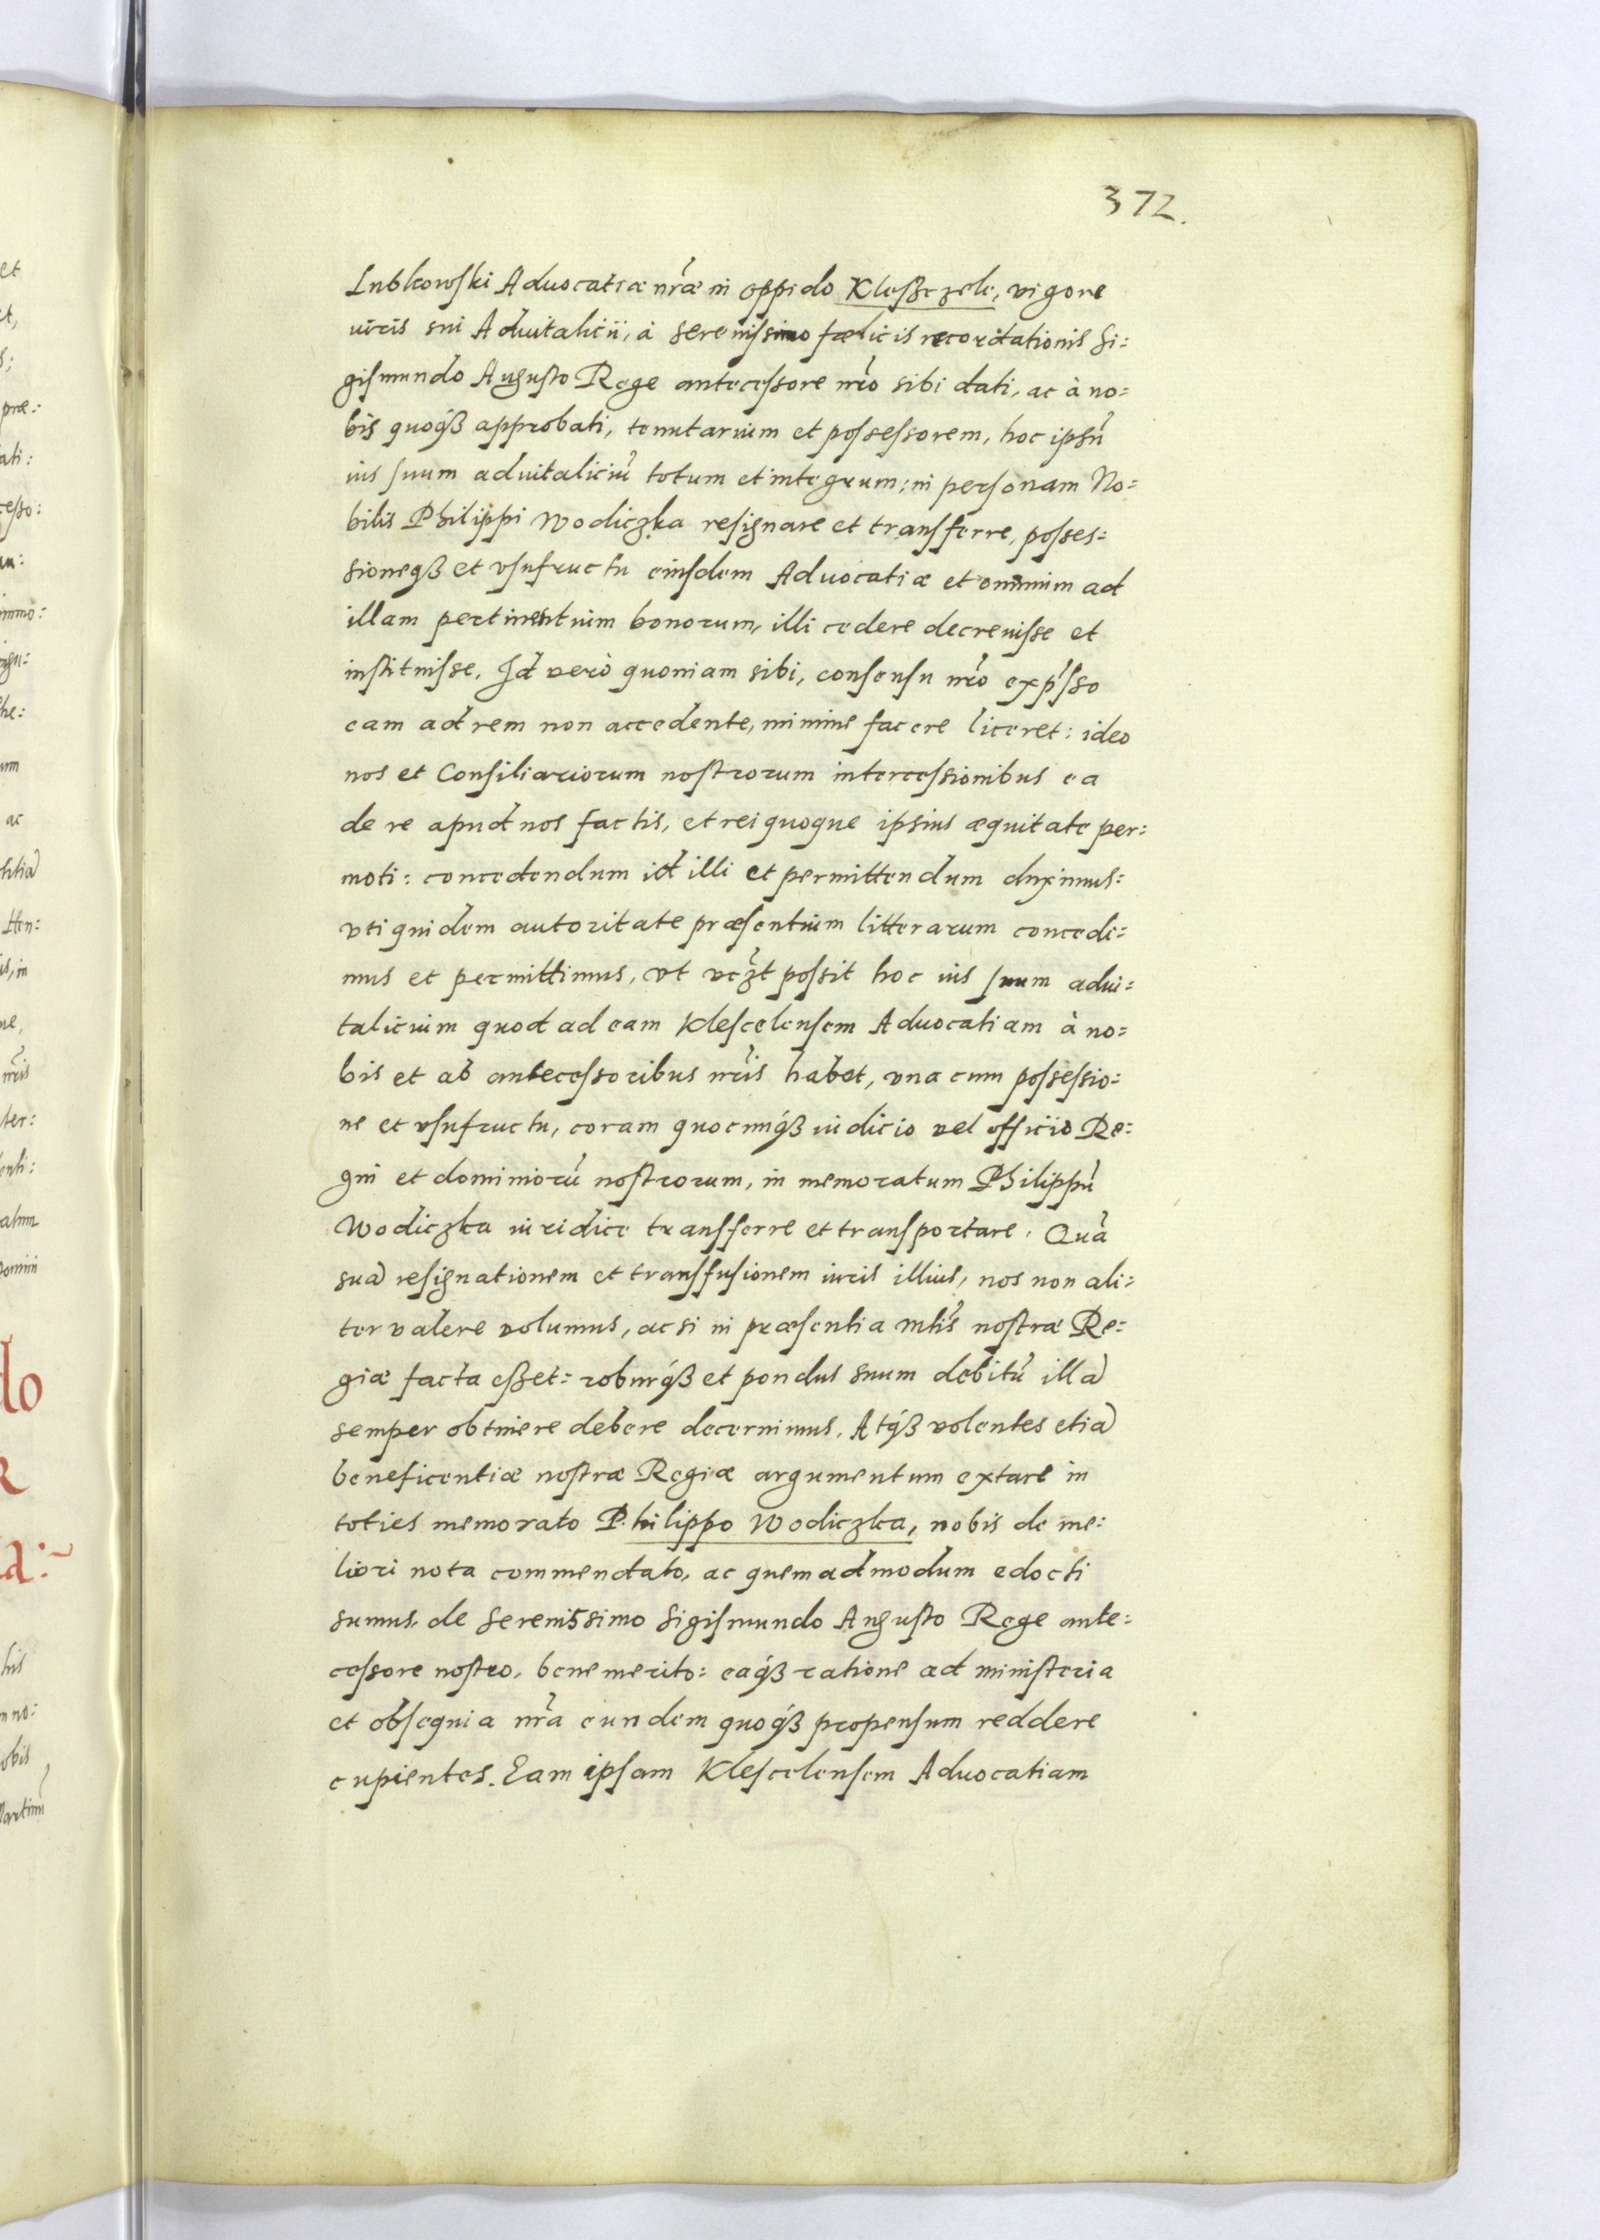 372.
Lubkowski Advocatiæ nr̃æ in oppido Kleszczele, vigore
iuris sui Advitalicii, à serenissimo fælicis recordationis Si:
gismundo Augusto Rege antecessore nr̃o sibi dati, ac à no:
bis quoqȝ approbati, tenutarium et possessorem, hoc ipsũ
ius suum advitaliciũ totum et integrum; in personam No:
bilis Philippi Wodiczka resignare et transferre, posses:
sioneqȝ et vsufructu eiusdem Advocatiæ et omnium ad
illam pertinentium bonorum, illi cedere decrevisse et
instituisse. Id verò quoniam sibi, consensu nr̃o exp̃sso
eam ad rem non accedente, minime facere liceret: ideo
nos et Consiliariorum nostrorum intercessionibus ea
de re apud nos factis, et rei quoque ipsius æquitate per:
moti: concedendum id illi et permittendum duximus:
vti quidem autoritate præsentium litterarum concedi:
mus et permittimus, vt vcz̃t possit hoc ius suum advi:
talicium quod ad eam Klescelensem Advocatiam à no:
bis et ab antecessoribus nr̃is habet, vna cum possessio:
ne et vsufructu, coram quocunqȝ iudicio vel officio Re:
gni et dominiorũ nostrorum, in memoratum Philippũ
Wodiczka iuridice transferre et transportare. Quã
suã resignationem et transfusionem iuris illius, nos non ali:
ter valere volumus, ac si in præsentia Mtĩs nostræ Re:
giæ facta eszet: roburqȝ et pondus suum debitũ illã
semper obtinere debere decernimus. Atqȝ volentes etiã
beneficentiæ nostræ Regiæ argumentum extare in
toties memorato Philippo Wodiczka, nobis de me:
liori nota commendato, ac quemadmodum edocti
sumus, de Serenissimo Sigismundo Augusto Rege ante:
cessore nostro, bene merito: eaqȝ ratione ad ministeria
et obsequia nr̃a eundem quoqȝ propensum reddere
cupientes. Eam ipsam Klescelensem Advocatiam